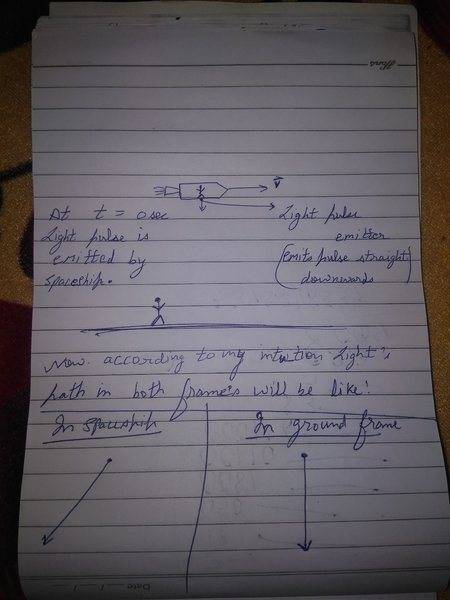 At t = 0 sec
Light pulse is
emitted by
spaceship.
v
Light pulse
emitter
(emits pulse straight
downwards)
Now according to my intution Light's
path in both frame's will be like!
In spaceship
In ground frame
Date